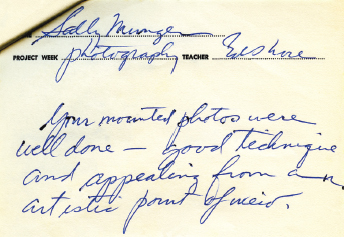 Sally Munger
PROJECT WEEK photography TEACHER Ed Shore
Your mounted photos were
well done — good technique
and appealing from an
artistic point of veiw.